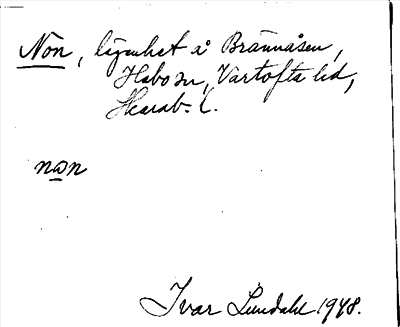 Nön, lägenhet å Brännåsen,
Habo sn, Vartofta hd,
Skarab. l.
nøn
Ivar Lundahl 1948.